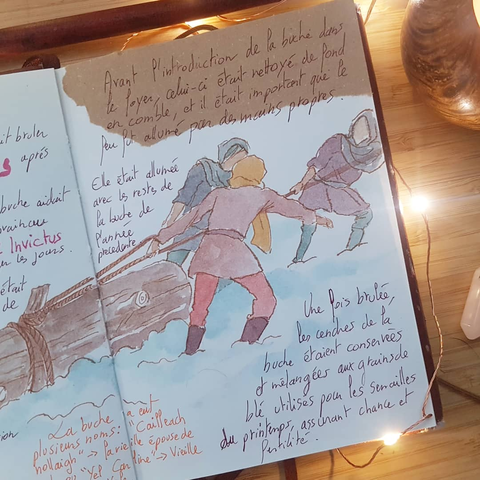 Avant l'introduction de la bûche dans
le foyer, celui-ci était nettoyé de fond
en comble, et il était important que le
feu fut allumé par des mains propres.
Elle était allumée
avec les restes de
la bûche de
l'année
précédente
Une fois brulée,
les cendres de la
buche étaient conservées
et mélangées aux grains de
blé utilisés pour les semailles
du printemps, assurant chance et
fertilité.
brûler
après
bûche aidait
vaincu
Invictus
les jours.
était
de
La buche a eut
plusieurs noms: "Cailleach
nollaigh" → la vieille épouse de
"Yel → Vieille